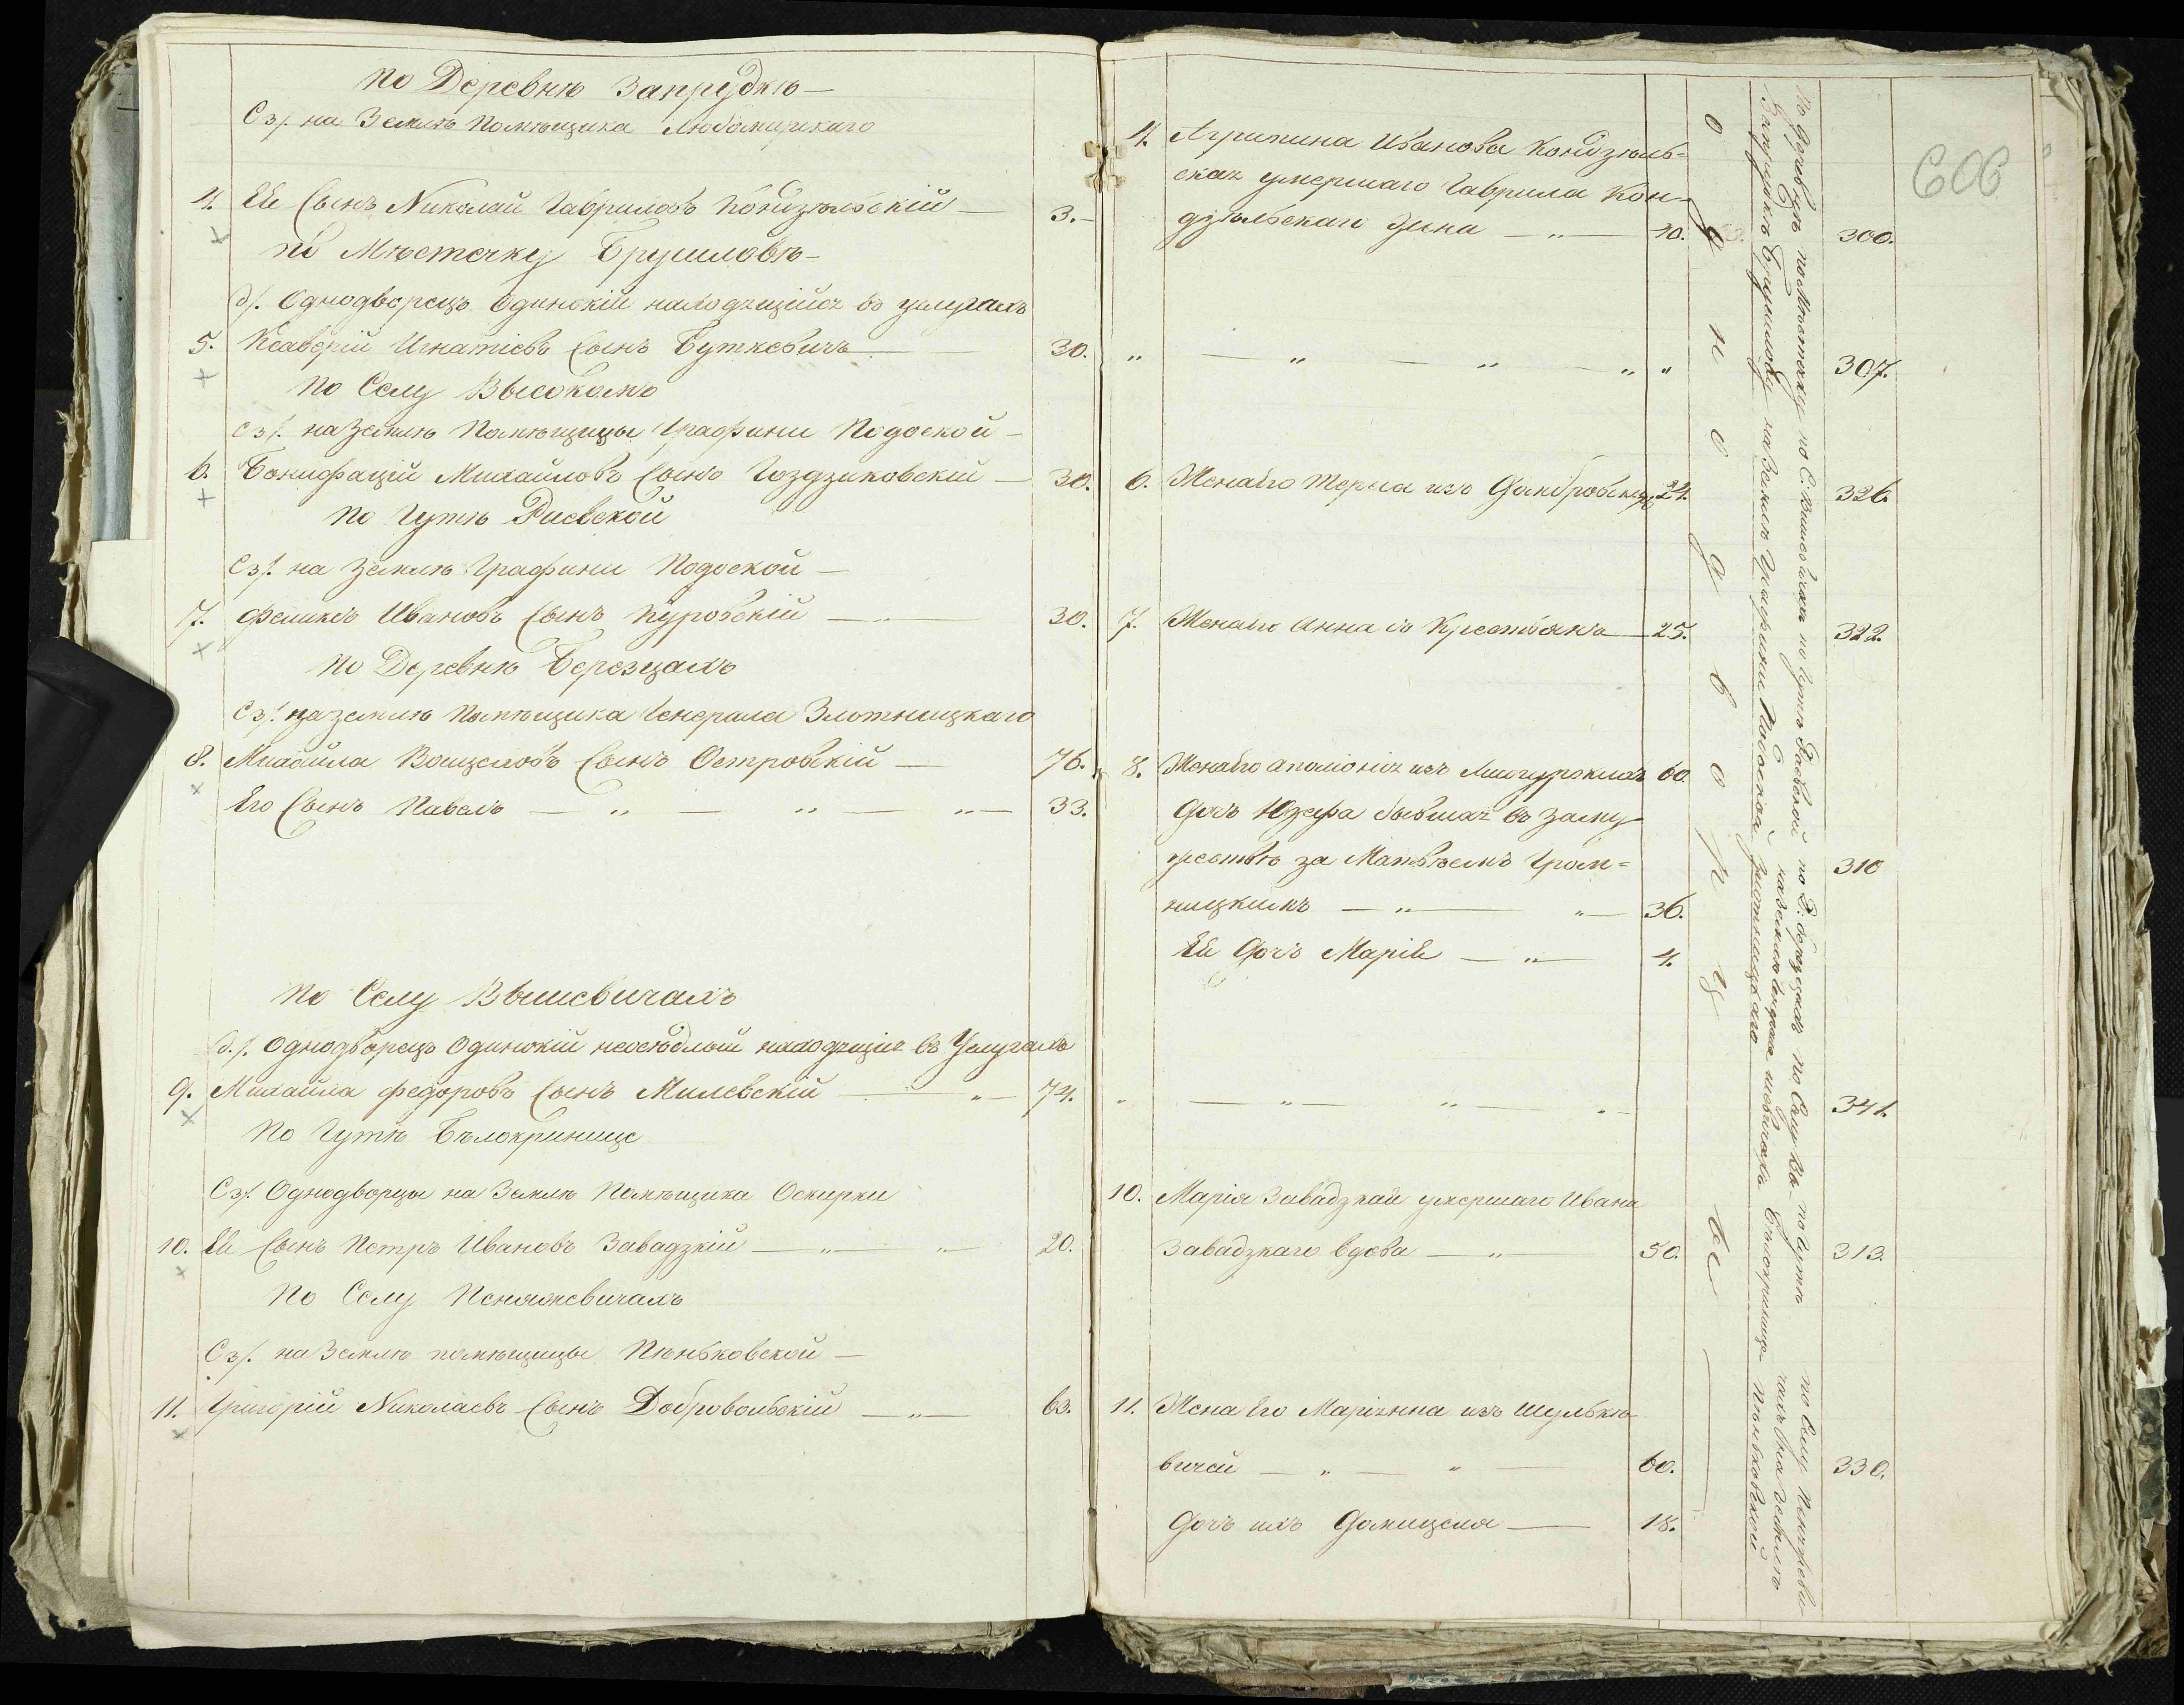 По Деревнѣ Запрудкѣ —
Сз/. на Землѣ Помѣщика Любомирскаго
4. Ея Сынъ Николай Гавриловъ Кондзѣльскій — 3. —
По Мѣстечку Брусиловѣ —
д/. Однодворецъ Одинокій находящійся въ услугахъ
5. Ксаверій Игнатіевъ Сынъ Буткевичъ — 30.
По Селу Высокомъ
Сз/. на Землѣ Помѣщицы Графини Подоской —
6. Бонифацій Михайловъ Сынъ Гоздзиковскій — 30.
По Гутѣ Раевской
Сз/. на Землѣ Графини Подоской —
7. Феликсъ Ивановъ Сынъ Куровскій — „ — 30.
По Деревнѣ Березцахъ
Сз/. на землѣ Помѣщика Генерала Злотницкаго
8. Михайла Войцеховъ Сынъ Островскій — 76.
Его Сынъ Павелъ — „ — „ — „ — 33.
По Селу Вышевичахъ
д./. Однодворецъ Одинокій неосѣдлый находящійся въ Услугахъ
9. Михайла Федоровъ Сынъ Милевскій — „ — 74.
По Гутѣ Бѣлокринице
Сз/. Однодворцы на Землѣ Помѣщика Оскирки
10. Ея Сынъ Петръ Ивановъ Завадзкій — „ — „ — 20.
По Селу Пеняжевичахъ
Сз/. на Землѣ помѣщицы Пѣньковской —
11. Григорій Николаевъ Сынъ Добровольскій — „ — 63.
606
4. Агрипина Иванова Кондзѣль=
ская умершаго Гаврила Кон=
дзѣльскаго Жена — „ — 30. 300.
„ — „ — „ — „ „ 307.
6. Жена Его Терса изъ Домбровскихъ 24. 326.
7. Жена Его Анна съ Крестьянъ — 25. 322.
8. Жена Его Аполонія изъ 60.
Дочь Юзефа бывшая въ Заму
жествѣ за Матвѣемъ Гром= 310
ницкимъ — „ — „ — 36.
Ея Дочь Марія — „ — 4.
„ — „ — „ — „ — 341.
10. Марія Завадзкая умершаго Ивана
Завадзкаго вдова — „ 50. 313.
11. Жена Его Маріянна изъ Шулькѣ
вичей — „ — „ — 60. 330.
Дочь ихъ Домицеля — 18.
о д н о д в о р ц ы
по Мѣстечку
по Гутѣ Раевской
Брусиловѣ на Землѣ Графини Подоской
Злотницкаго
по Гутѣ
Бѣлокринице
по Селу Пеняжеви
чахъ на Землѣ
Пѣньковской